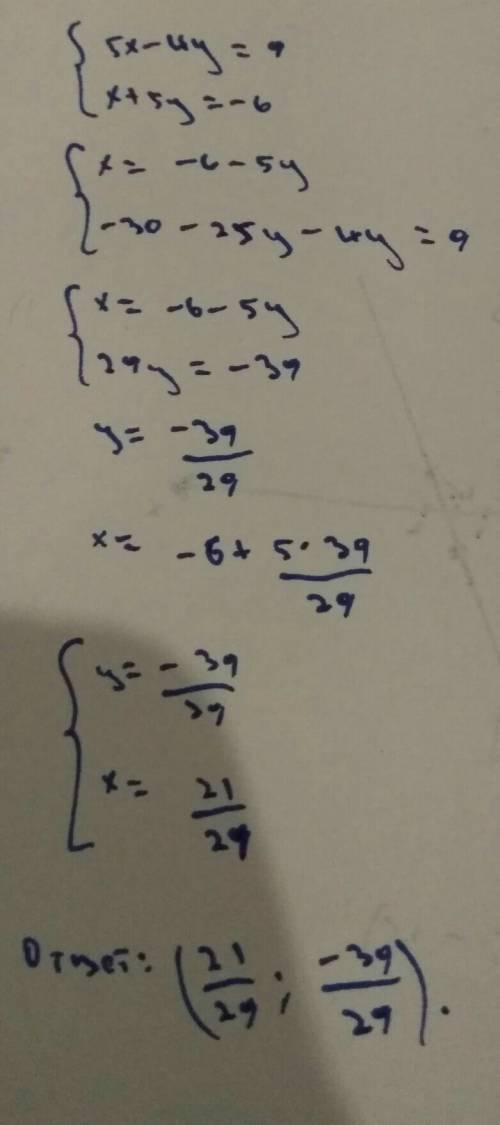 { 5x - 4y = 9
x + 5y = -6
{ x = -6 - 5y
-30 - 25y - 4y = 9
{ x = -6 - 5y
29y = -39
y = -39/29
x = -6 + 5·39/29
{ y = -39/39
x = 21/29
Ответ: (21/29; -39/29).